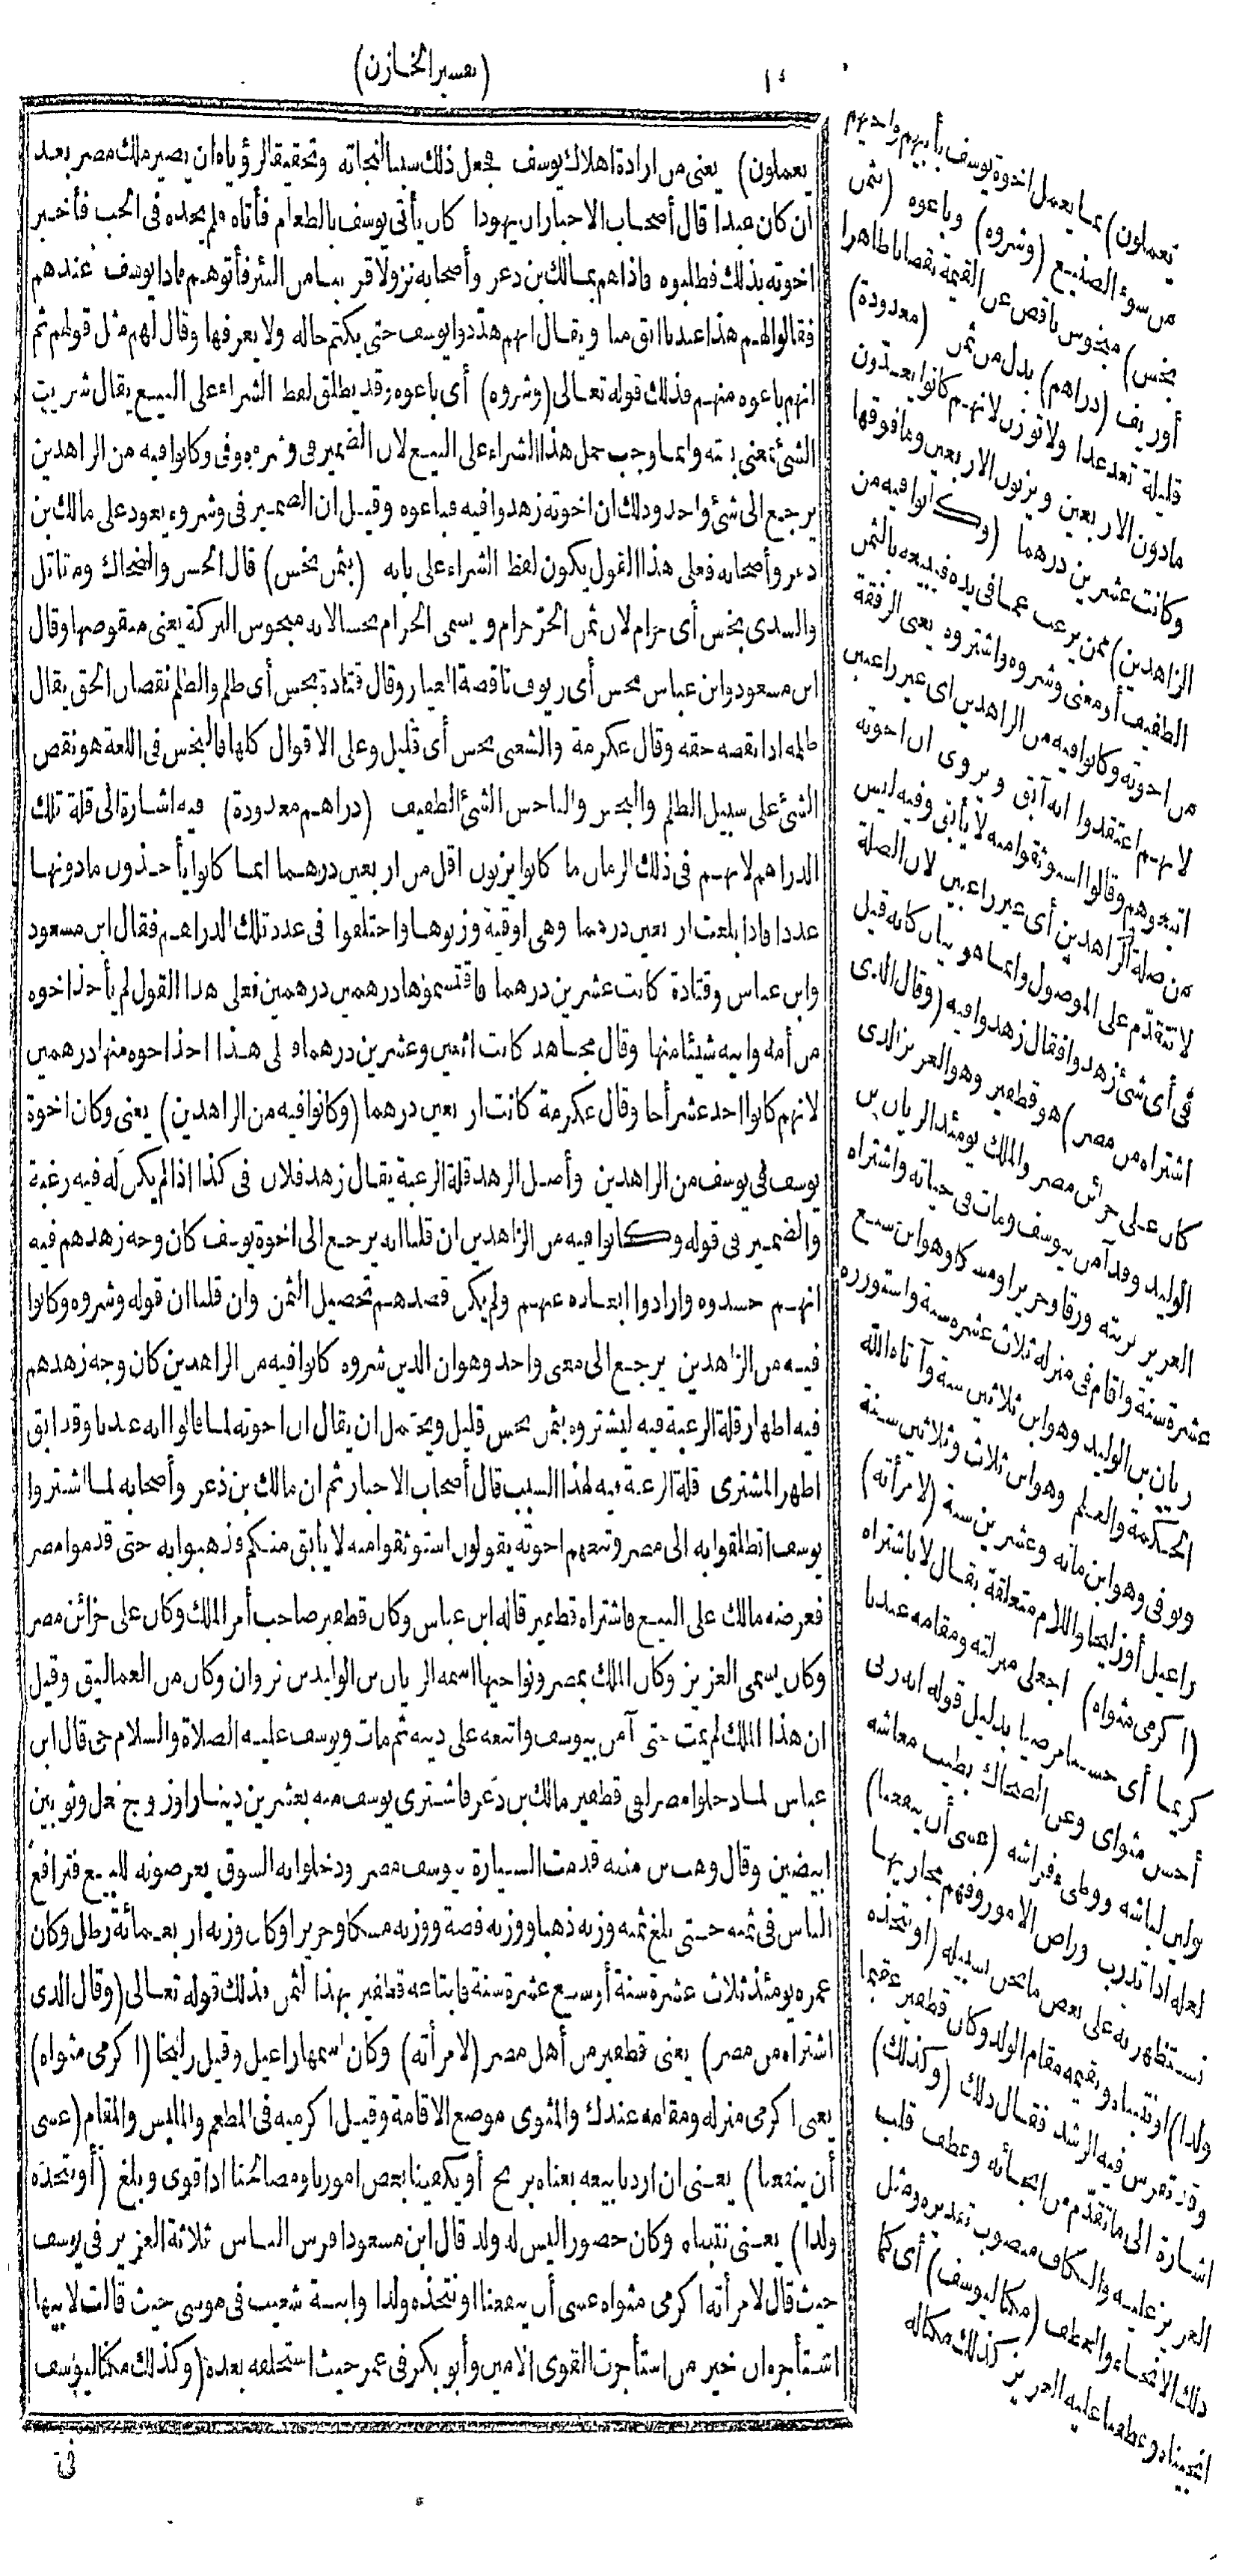 (تفسير الخازن)
يعملون) يعنى من ارادة اهلاك يوسف فجعل ذلك سببا لنجاته وتحقيق الرؤياه ان يصير ملك مصر بعد
أن كان عبدا قال أصحاب الاخبار ان يهودا كان يأتى يوسف بالطعام فأتاه فلم يجده فى الجب فأخبر
اخوته بذلك فطلبوه فاذا هم بمالك بن دعر وأصحابه نزولا قريبا من البئر فأتوهم فاذا يوسف عندهم
فقالوا لهم هذا عبدنا ابق منا ويقال انهم هددوا يوسف حتى يكتم حاله ولا يعرفها وقال لهم مثل قولهم ثم
انهم باعوه منهم فذلك قوله تعالى (وشروه) أى باعوه وقد يطلق لفظ الشراء على البيع يقال شريت
الشئ بمعنى بعته وانما وجب حمل هذا الشراء على البيع لان الضمير فى وشروه وفى وكانوا فيه من الزاهدين
يرجع الى شئ واحد وذلك ان اخوته زهدوا فيه فباعوه وقيل ان الضمير فى وشروه يعود على مالك بن
دعر وأصحابه فعلى هذا القول يكون لفظ الشراء على بابه (بثمن بخس) قال الحسن والضحاك ومقاتل
والسدى بخس أى حرام لان ثمن الحرّ حرام ويسمى الحرام بخسا لانه مبخوس البركة يعنى منقوصها وقال
ابن مسعود وابن عباس بخس أى زيوف ناقصة العيار وقال قتادة بخس أى ظلم والظلم نقصان الحق يقال
ظلمه اذا نقصه حقه وقال عكرمة والشعبى بخس أى قليل وعلى الاقوال كلها فالبخس فى اللغة هو نقص
الشئ على سبيل الظلم والبخس والباخس الشئ الطفيف (دراهم معدودة) فيه اشارة الى قلة تلك
الدراهم لانهم فى ذلك الزمان ما كانوا يزنون اقل من اربعين درهما انما كانوا يأخذون مادونها
عددا فاذا بلغت اربعين درهما وهى اوقية وزنوها واختلفوا فى عدد تلك الدراهم فقال ابن مسعود
وابن عباس وقتادة كانت عشرين درهما فاقتسموها درهمين درهمين فعلى هذا القول لم يأخذ اخوه
من أمه وابيه شيئا منها وقال مجاهد كانت اثنين وعشرين درهما فعلى هذا اخذ اخوه منها درهمين
لانهم كانوا احد عشر أخا وقال عكرمة كانت اربعين درهما (وكانوا فيه من الزاهدين) يعنى وكان اخوة
يوسف فى يوسف من الزاهدين وأصل الزهد قلة الرغبة يقال زهد فلان فى كذا اذا لم يكن له فيه رغبة
والضمير فى قوله وكانوا فيه من الزاهدين ان قلنا انه يرجع الى اخوة يوسف كان وجه زهدهم فيه
انهم حسدوه وارادوا ابعاده عنهم ولم يكن قصدهم تحصيل الثمن وان قلنا ان قوله وشروه وكانوا
فيه من الزاهدين يرجع الى معنى واحد وهو ان الذين شروه كانوا فيه من الزاهدين كان وجه زهدهم
فيه اظهار قلة الرغبة فيه ليشتروه بثمن بخس قليل ويحتمل ان يقال ان اخوته لما قالوا انه عبدنا وقد ابق
اظهر المشترى قلة الرغبة فيه لهذا السبب قال أصحاب الاخبار ثم ان مالك بن ذعر وأصحابه لما اشتروا
يوسف انطلقوا به الى مصر وتبعهم اخوته يقولون استوثقوا منه لا يأبق منكم فذهبوا به حتى قدموا مصر
فعرضه مالك على البيع فاشتراه قطفير قاله ابن عباس وكان قطفير صاحب أمر الملك وكان على خزائن مصر
وكان يسمى العزيز وكان الملك بمصر ونواحيها اسمه الريان بن الوليد بن نزوان وكان من العماليق وقيل
ان هذا الملك لم يمت حتى آمن بيوسف واتبعه على دينه ثم مات ويوسف عليه الصلاة والسلام حى قال ابن
عباس لما دخلوا مصر لقى قطفير مالك بن دعر فاشترى يوسف منه بعشرين دينارا وزوج نعل وثوبين
ابيضين وقال وهب بن منبه قدمت السيارة بيوسف مصر ودخلوا به السوق يعرضونه للبيع فترافع
الناس فى ثمنه حتى بلغ ثمنه وزنه ذهبا ووزنه فضة ووزنه مسكا وحريرا وكان وزنه اربعمائة رطل وكان
عمره يومئذ ثلاث عشرة سنة أو سبع عشرة سنة فابتاعه قطفير بهذا الثمن فذلك قوله تعالى (وقال الذى
اشتراه من مصر) يعنى قطفير من أهل مصر (لامرأته) وكان اسمها راعيل وقيل زليخا (اكرمى مثواه)
يعنى اكرمى منزله ومقامه عندك والمثوى موضع الاقامة وقيل اكرميه فى المطعم والملبس والمقام (عسى
أن ينفعنا) يعنى ان اردنا بيعه بعناه بربح أو يكفينا بعض امورنا ومصالحنا اذا قوى وبلغ (أو نتخذه
ولدا) يعنى نتبناه وكان حصورا ليس له ولد قال ابن مسعود افرس الناس ثلاثة العزيز فى يوسف
حيث قال لامرأته اكرمى مثواه عسى أن ينفعنا او نتخذه ولدا وابنة شعيب فى موسى حيث قالت لابيها
استأجره ان خير من استأجرت القوى الامين وأبو بكر فى عمر حيث استخلفه بعده (وكذلك مكنا ليوسف
فى
يعملون) بما يعمل اخوة يوسف بأبيهم وأخيهم
من سوء الصنيع (وشروه) وباعوه (بثمن
بخس) مبخوس ناقص عن القيمة نقصانا ظاهرا
أو زيف (دراهم) بدل من ثمن (معدودة)
قليلة تعد عدا ولا توزن لانهم كانوا يعدّون
مادون الاربعين ويزنون الاربعين وما فوقها
وكانت عشرين درهما (وكانوا فيه من
الزاهدين) ممن يرغب عما فى يده فيبيعه بالثمن
الطفيف أو معنى وشروه واشتروه يعنى الرفقة
من اخوته وكانوا فيه من الزاهدين اى غير راغبين
لانهم اعتقدوا انه آبق ويروى ان اخوته
اتبعوهم وقالوا استوثقوا منه لا يأبق وفيه ليس
من صلة الزاهدين أى غير راغبين لان الصلة
لا تتقدّم على الموصول وانما هو بيان كانه قيل
فى أى شئ زهدوا فقال زهدوا فيه (وقال الذى
اشتراه من مصر) هو قطفير وهو العزيز الذى
كان على خزائن مصر والملك يومئذ الريان بن
الوليد وقد آمن بيوسف ومات فى حياته واشتراه
العزيز بزنته ورقا وحريرا ومسكا وهو ابن سبع
عشرة سنة واقام فى منزله ثلاث عشرة سنة واستوزره
ريان بن الوليد وهو ابن ثلاثين سنة وآتاه الله
الحكمة والعلم وهو ابن ثلاث وثلاثين سنة
وتوفى وهو ابن مائة وعشرين سنة (لامرأته)
راعيل أو زليخا واللام متعلقة بقال لا باشتراه
(اكرمى مثواه) اجعلى منزلته ومقامه عندنا
كريما أى حسنا مرضيا بدليل قوله انه ربى
أحسن مثواى وعن الضحاك بطيب معاشه
ولين لباسه ووطىء فراشه (عسى أن ينفعنا)
لعله اذا تدرب وراض الامور وفهم مجاريها
نستظهر به على بعض ما نحن بسبيله (او نتخذه
ولدا) او نتبناه ونقيمه مقام الولد وكان قطفير عقيما
وقد تفرس فيه الرشد فقال ذلك (وكذلك)
اشارة الى ما تقدّم من انجائه وعطف قلب
العزيز عليه والكاف منصوب تقديره ومثل
ذلك الانجاء والعطف (مكنا ليوسف) أى كما
انجيناه وعطفنا عليه العزيز كذلك مكنا له